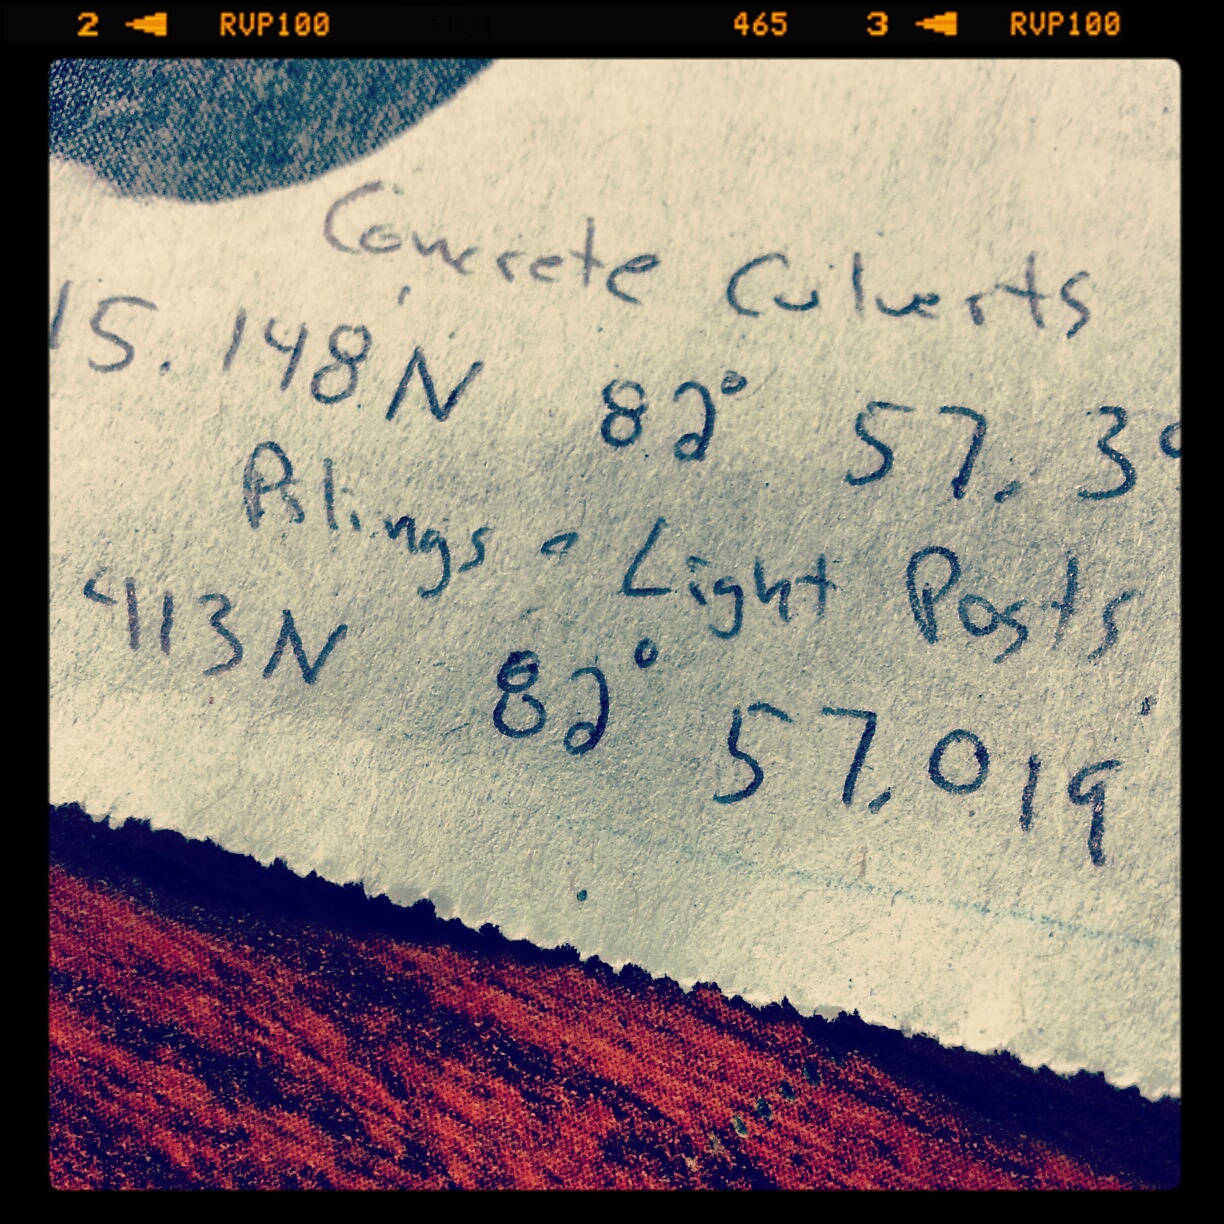 2 RVP100 465 3 RVP100
Concrete Culverts
15.148N 82° 57.3
Pilings - Light Posts
413N 82° 57.019'